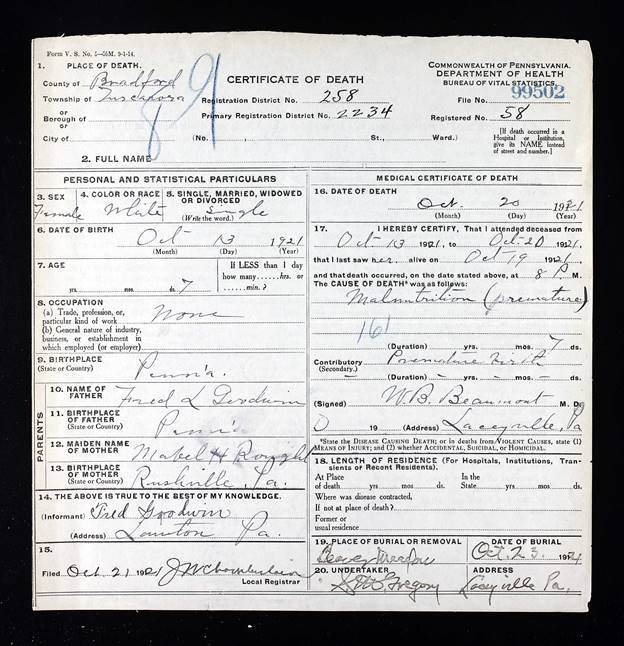 Form V. S. No. 5—50M. 9-1-14.
1. PLACE OF DEATH.
County of Bradford
Township of Tuscarora
or
Borough of
or
City of
91
8
CERTIFICATE OF DEATH
Registration District No. 258
Primary Registration District No. 2234
(No. St., Ward.)
COMMONWEALTH OF PENNSYLVANIA.
DEPARTMENT OF HEALTH
BUREAU OF VITAL STATISTICS.
File No. 99502
Registered No. 58
[If death occurred in a Hospital or Institution, give its NAME instead of street and number.]
2. FULL NAME
PERSONAL AND STATISTICAL PARTICULARS
3. SEX
Female
4. COLOR OR RACE
White
5. SINGLE, MARRIED, WIDOWED OR DIVORCED
(Write the word.)
Single
6. DATE OF BIRTH
Oct 13 1921
(Month) (Day) (Year)
7. AGE
yrs. mos. 7 ds.
If LESS than 1 day
how many......hrs. or
......min.?
8. OCCUPATION
(a) Trade, profession, or particular kind of work
None
(b) General nature of industry, business, or establishment in which employed (or employer)
9. BIRTHPLACE
(State or Country)
Penn'a.
PARENTS
10. NAME OF FATHER
Fred L Goodwin
11. BIRTHPLACE OF FATHER
(State or Country)
Penn'a
12. MAIDEN NAME OF MOTHER
Mabel H
13. BIRTHPLACE OF MOTHER
(State or Country)
Rushville, Pa.
14. THE ABOVE IS TRUE TO THE BEST OF MY KNOWLEDGE.
(Informant) Fred Goodwin
(Address) Lawton Pa.
15.
Filed Oct 21 1921 J W Chamberlain
Local Registrar
MEDICAL CERTIFICATE OF DEATH
16. DATE OF DEATH
Oct. 20 1921
(Month) (Day) (Year)
17. I HEREBY CERTIFY, That I attended deceased from
Oct 13 1921, to Oct 20 1921,
that I last saw her alive on Oct 19 1921,
and that death occurred, on the date stated above, at 8 P M.
The CAUSE OF DEATH* was as follows:
Malnutrition (premature)
161
(Duration) yrs. mos. 7 ds.
Contributory Premature birth
(Secondary.)
(Duration) yrs. mos. ds.
(Signed) W. B. Beaumont M. D.
19 (Address) Laceyville, Pa
*State the DISEASE CAUSING DEATH; or in deaths from VIOLENT CAUSES, state (1) MEANS OF INJURY; and (2) whether ACCIDENTAL, SUICIDAL, or HOMICIDAL.
18. LENGTH OF RESIDENCE (For Hospitals, Institutions, Transients or Recent Residents).
At Place In the
of death yrs. mos. ds. State yrs. mos. ds.
Where was disease contracted,
If not at place of death?
Former or
usual residence
19. PLACE OF BURIAL OR REMOVAL
Meadow
DATE OF BURIAL
Oct. 23
20. UNDERTAKER
Gregory
ADDRESS
Laceyville Pa.